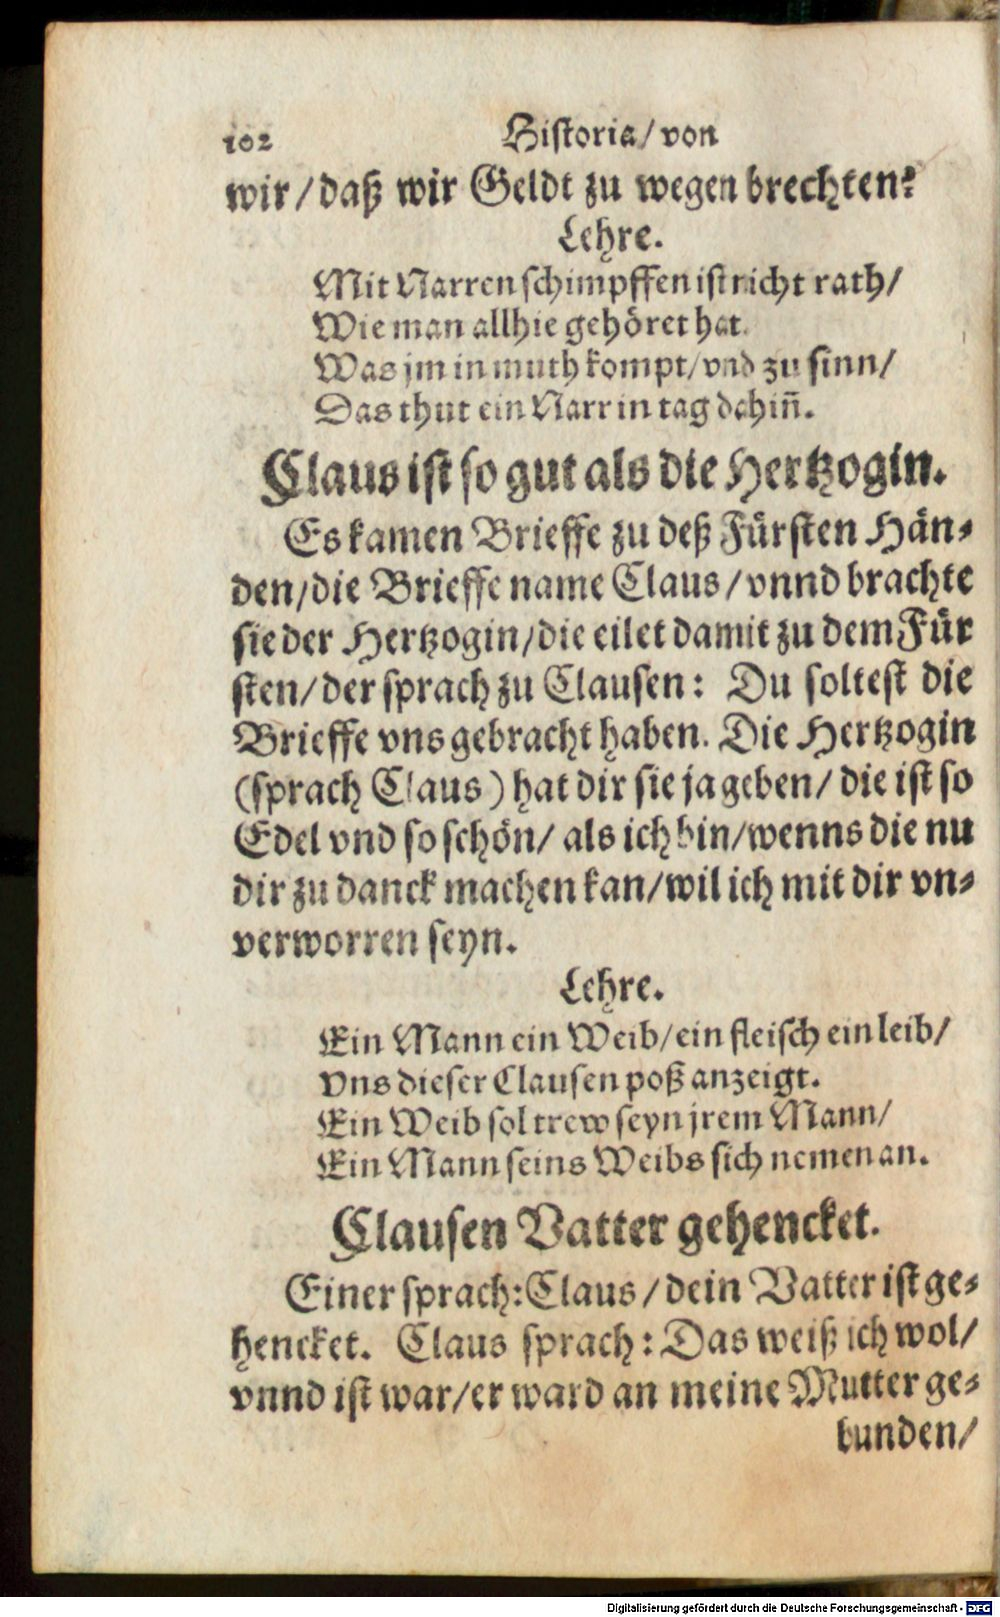 102 Historia/ von
wir/ daß wir Geldt zu wegen brechten?
Lehre.
Mit Narren schimpffen ist nicht rath/
Wie man allhie gehöret hat.
Was jm in muth kompt/ vnd zu sinn/
Das thut ein Narr in tag dahiñ.
Claus ist so gut als die Hertzogin.
Es kamen Brieffe zu deß Fürsten Hän⸗
den/ die Brieffe name Claus/ vnnd brachte
sie der Hertzogin/ die eilet damit zu dem Für
sten/ der sprach zu Clausen: Du soltest die
Brieffe vns gebracht haben. Die Hertzogin
(sprach Claus) hat dir sie ja geben/ die ist so
Edel vnd so schön/ als ich bin/ wenns die nu
dir zu danck machen kan/ wil ich mit dir vn⸗
verworren seyn.
Lehre.
Ein Mann ein Weib/ ein fleisch ein leib/
Vns dieser Clausen poß anzeigt.
Ein Weib sol trew seyn jrem Mann/
Ein Mann seins Weibs sich nemen an.
Clausen Vatter gehencket.
Einer sprach: Claus/ dein Vatter ist ge⸗
hencket. Claus sprach: Das weiß ich wol/
vnnd ist war/ er ward an meine Mutter ge⸗
bunden/
Digitalisierung gefördert durch die Deutsche Forschungsgemeinschaft - DFG